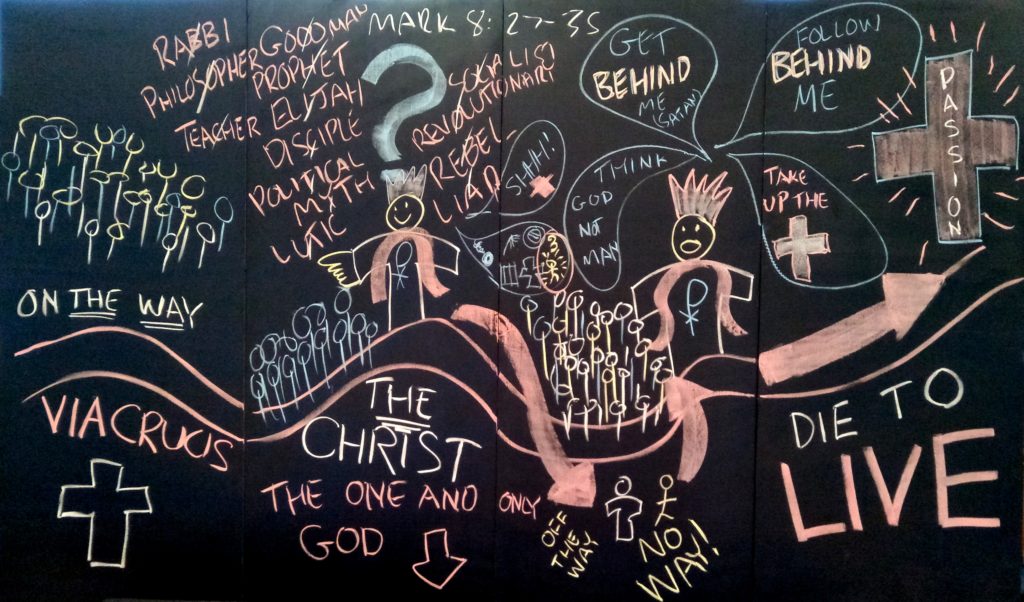 MARK 8:27-35
RABBI
PHILOSOPHER
TEACHER
GOOD MAN
PROPHET
ELIJAH
DISCIPLE
POLITICAL
MYTH
LUTIC
?
SOCIALIST
REVOLUTIONARY
REBEL
LIAR
SHH!
GET
BEHIND
ME
(SATAN)
THINK
GOD
NOT
MAN
FOLLOW
BEHIND
ME
TAKE
UP THE
PASSION
ON THE WAY
VIA CRUCIS
THE
CHRIST
THE ONE AND ONLY
GOD
OFF
THE
WAY
NO
WAY!
DIE TO
LIVE